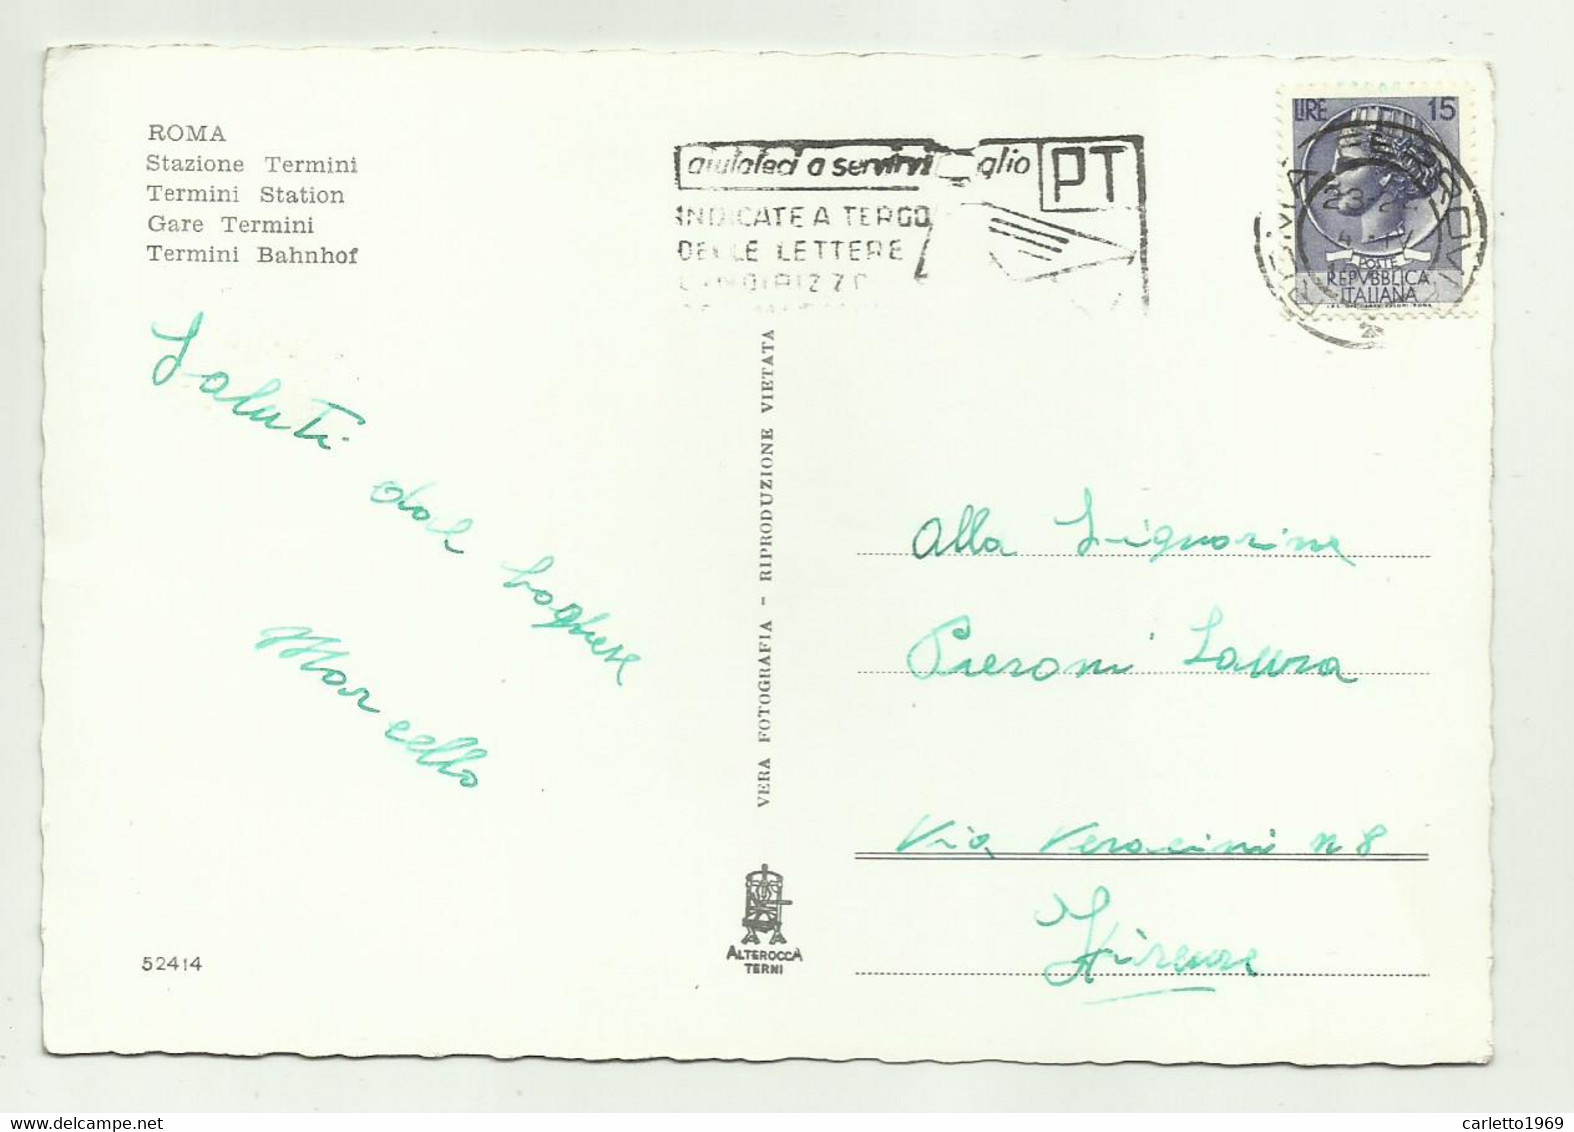 ROMA
Stazione Termini
Termini Station
Gare Termini
Termini Bahnhof
Saluti
dal
Marcello
52414
VERA FOTOGRAFIA - RIPRODUZIONE VIETATA
ALTEROCCA
TERNI
aiutateci a servirvi
PT
INDICATE A TERGO
DELLE LETTERE
LIRE 15
POSTE
REPVBBLICA
ITALIANA
ROMA FERROVIA
23-24
Alla Signorina
Pieroni Laura
Via Veracini n 8
Firenze
carletto1969